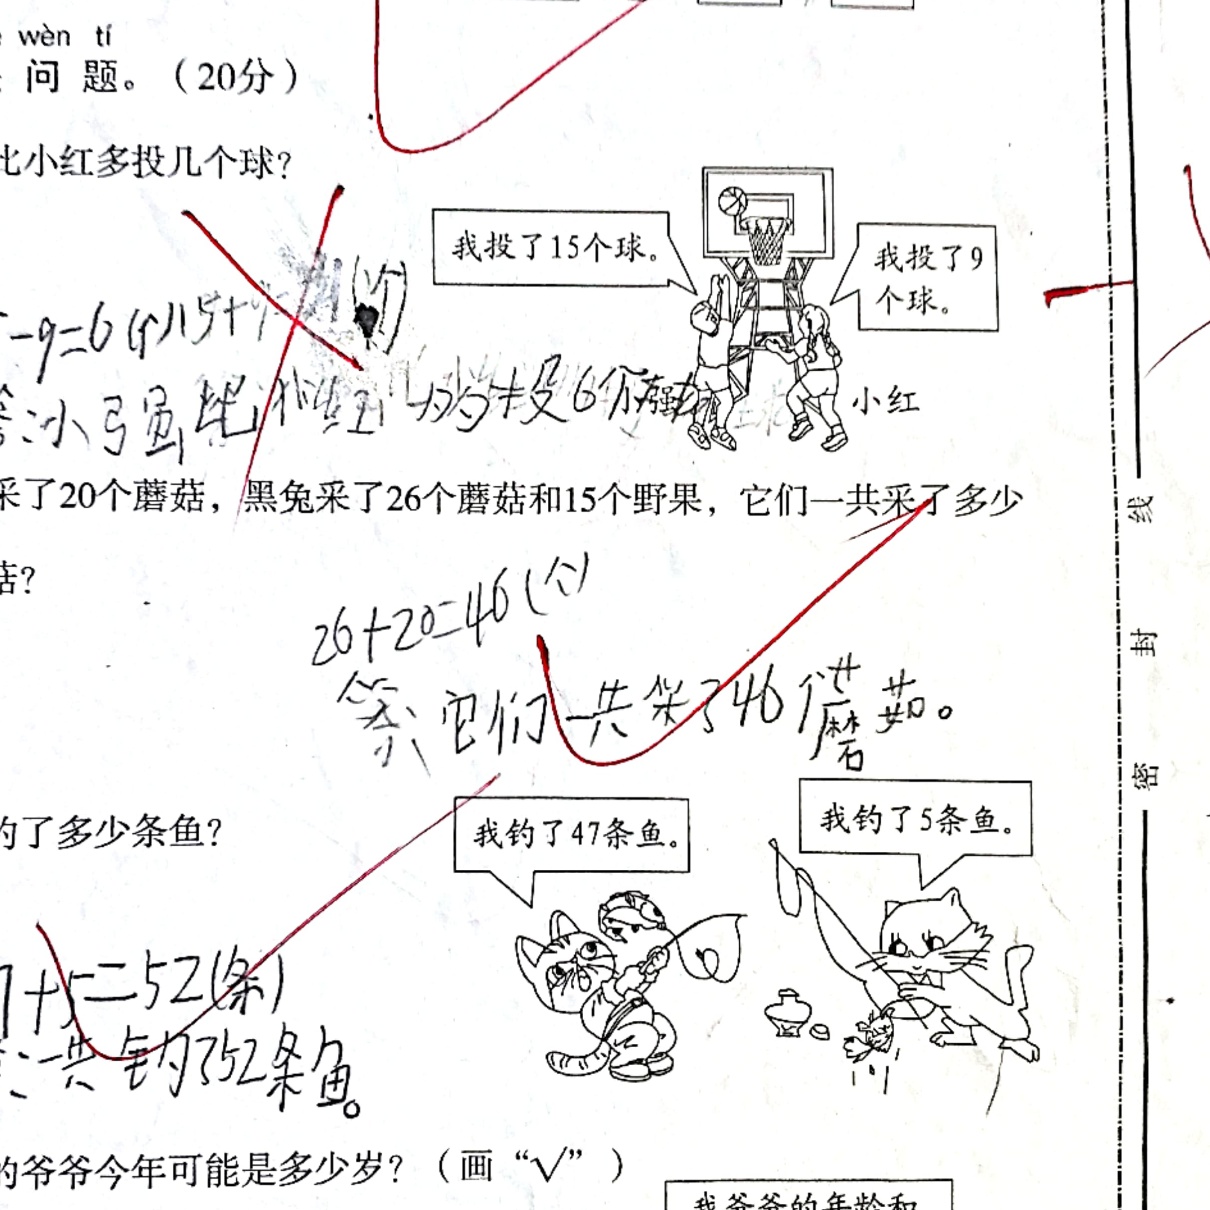 wèn tí
问题。（20分）
比小红多投几个球？
我投了15个球。
我投了9
个球。
-9=6(个)15+9=
小强比
投6个
小红
采了20个蘑菇，黑兔采了26个蘑菇和15个野果，它们一共采了多少
菇？
26+20=46(个)
答：它们一共采了46个蘑菇。
钓了多少条鱼？
我钓了47条鱼。
我钓了5条鱼。
7+5=52(条)
：一共钓了52条鱼。
的爷爷今年可能是多少岁？（画“√”）
我爷爷的年龄和
线
封
密